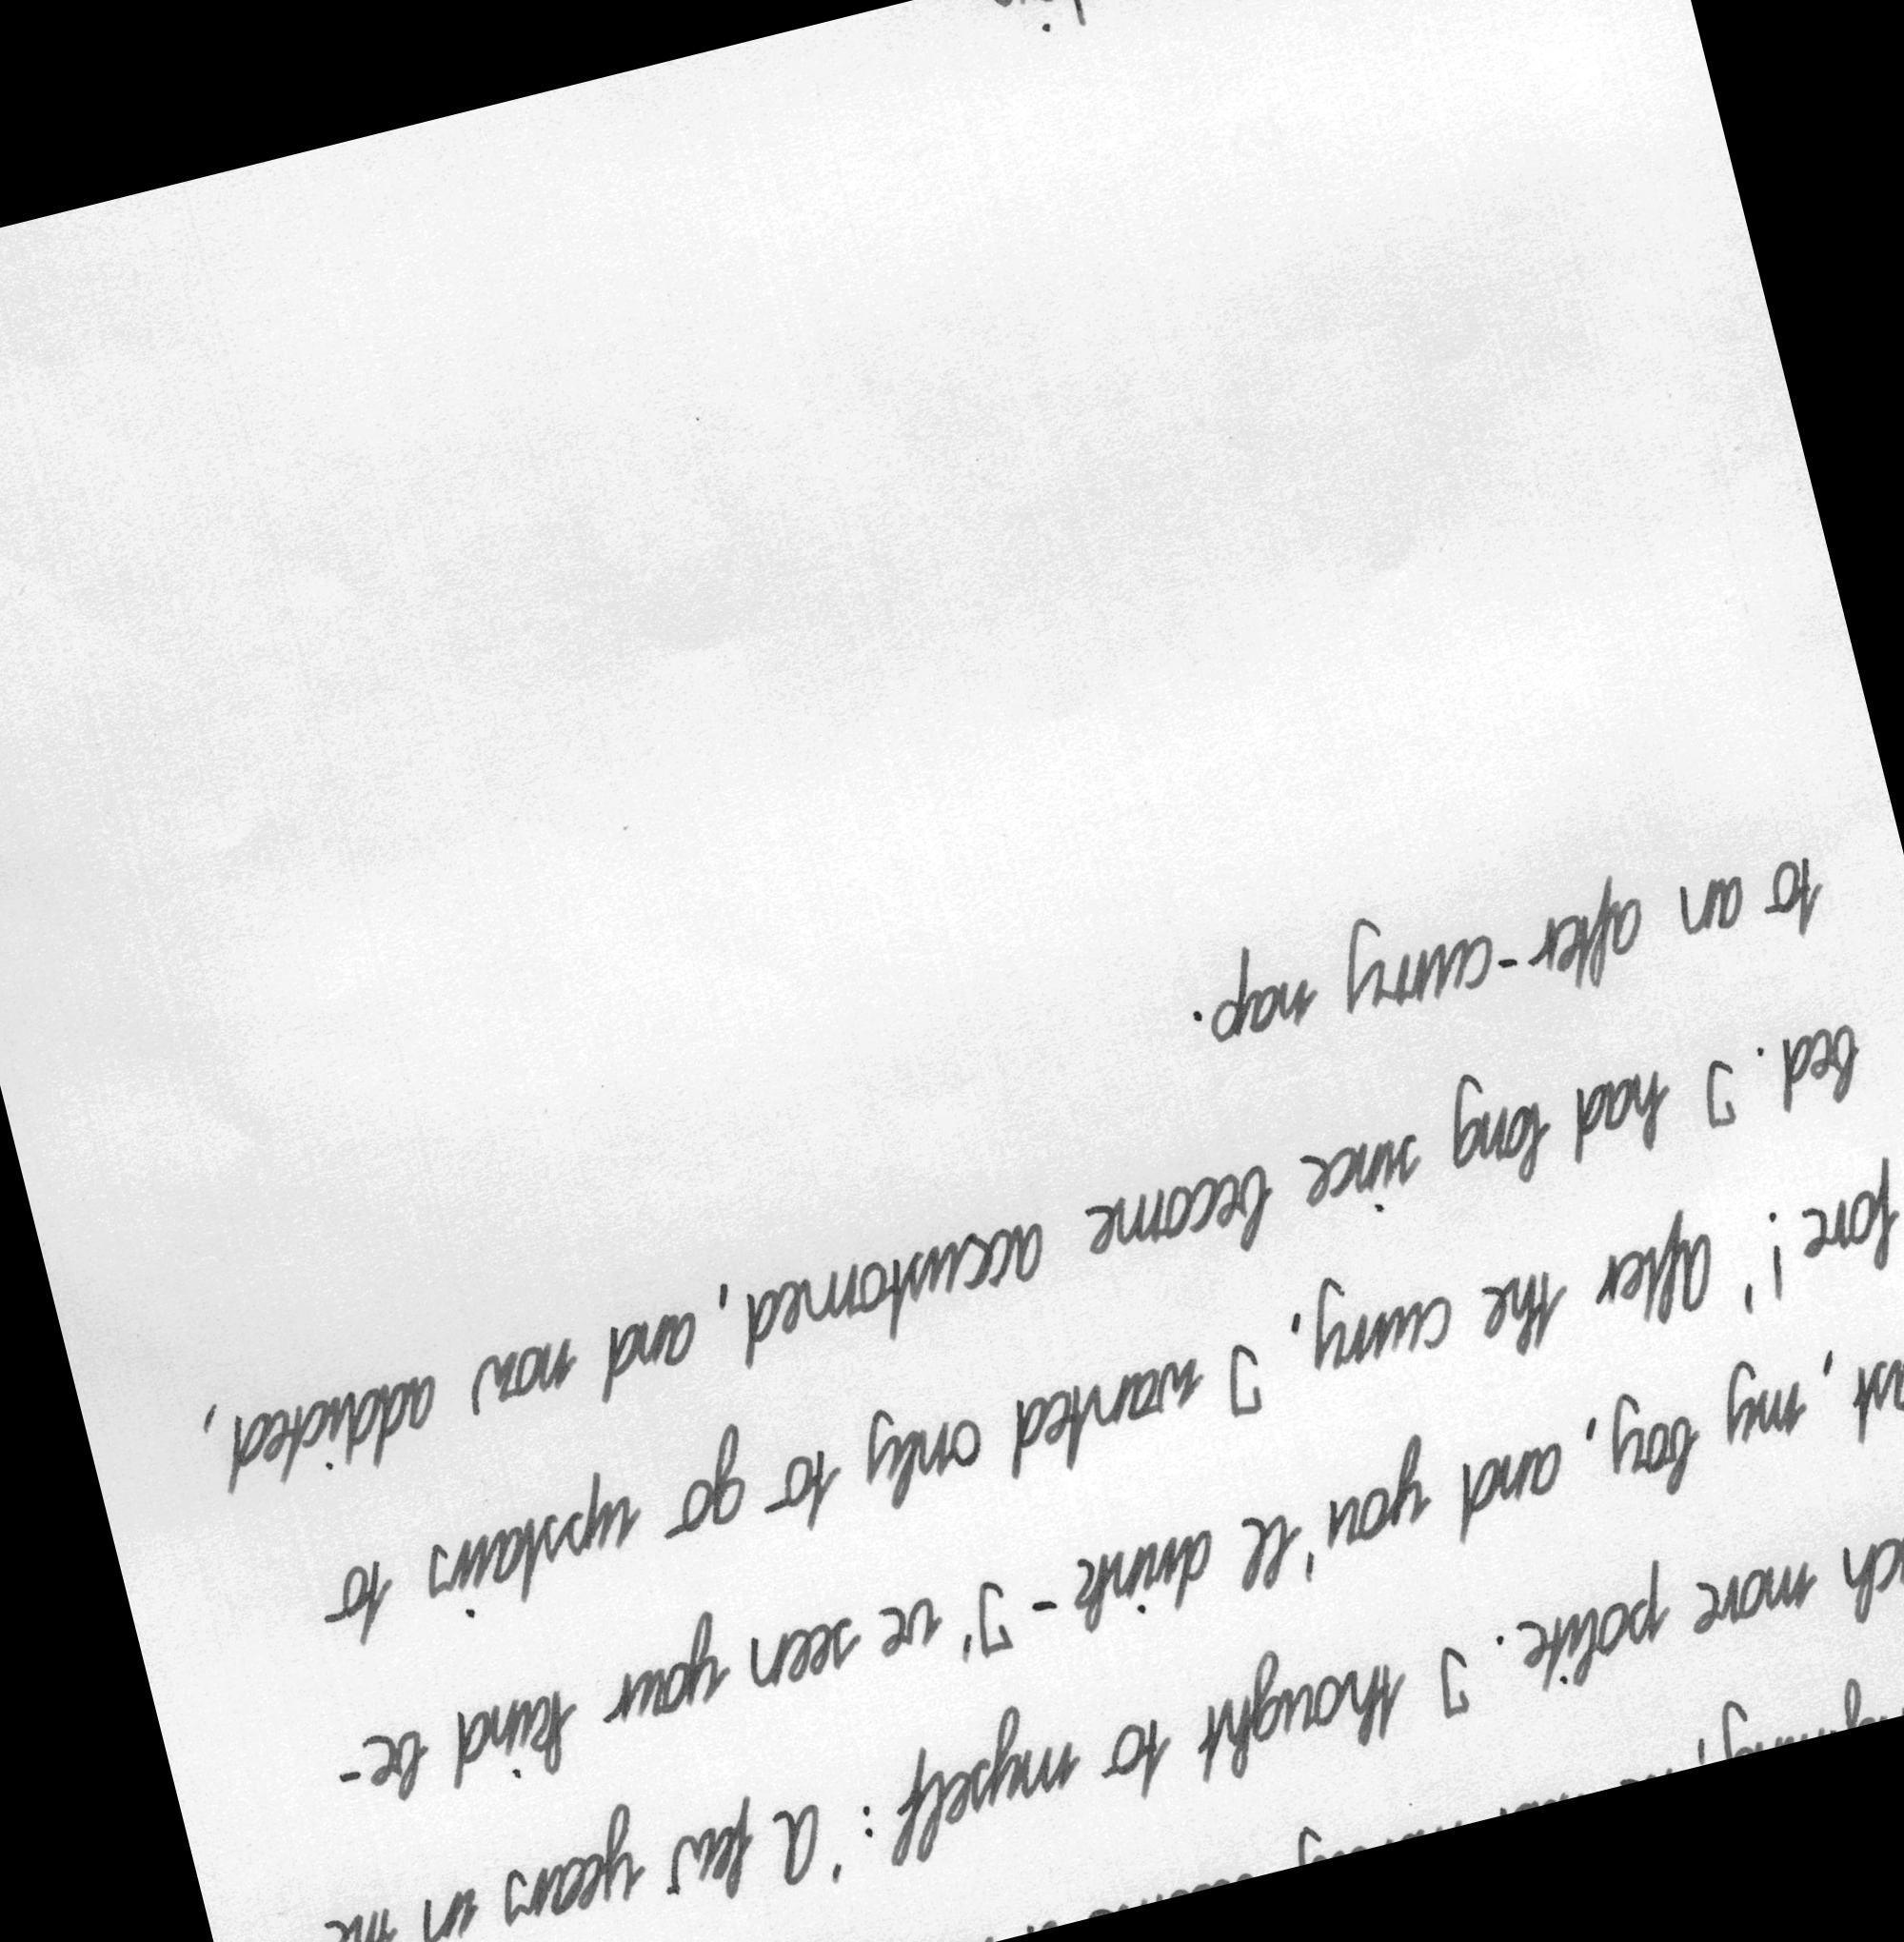 more polite. I thought to myself: 'A few years in the
, my boy, and you'll drink - I've seen your kind be-
fore!' After the curry, I wanted only to go upstairs to
bed. I had long since become accustomed, and now addicted,
to an after-curry nap.